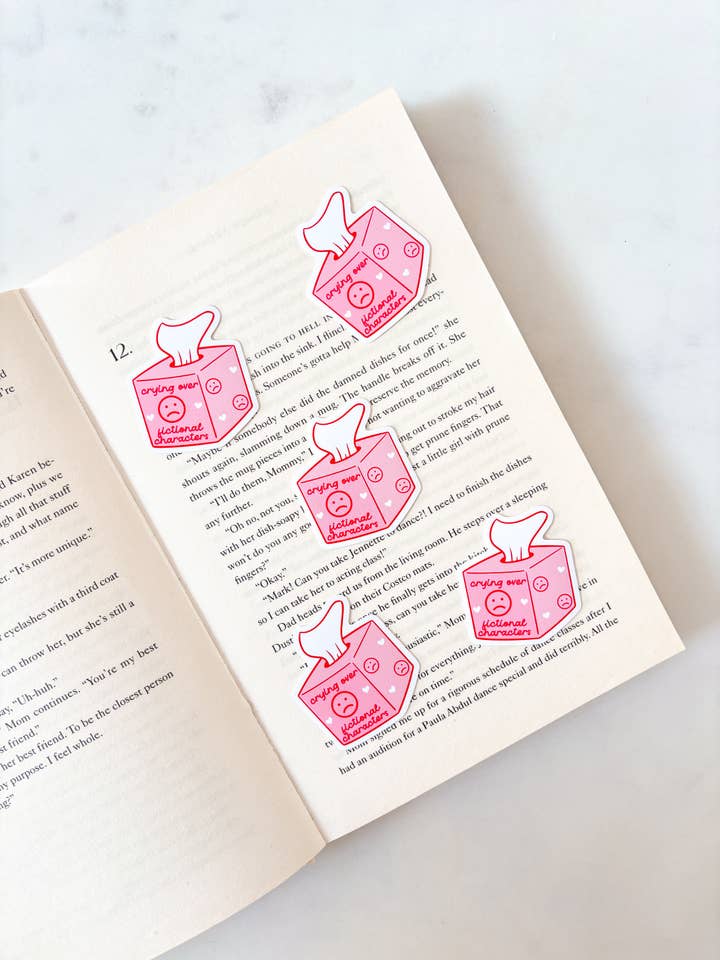 Karen be-
know, plus we
all that stuff
and what name
“It’s more unique.”
eyelashes with a third coat
can throw her, but she’s still a
“Uh-huh.”
Mom continues. “You’re my best
friend.”
her best friend. To be the closest person
purpose. I feel whole.
12.
GOING TO HELL IN
into the sink. I
Someone’s gotta help
“Maybe if somebody else did the damned dishes for once!” she
shouts again, slamming down a mug. The handle breaks off it. She
throws the mug pieces into a reserve the memory.
“I’ll do them, Mommy,” not wanting to aggravate her
any further.
“Oh no, not you, out to stroke my hair
with her dish-soapy get prune fingers. That
won’t do you any a little girl with prune
fingers?”
“Okay.”
“Mark! Can you take Jennette to dance?! I need to finish the dishes
so I can take her to acting class!”
Dad heads us from the living room. He steps over a sleeping
on their Costco mats.
he finally gets into the
can you take
Mom
for everything.
on time.”
Mom signed me up for a rigorous schedule of dance classes after I
had an audition for a Paula Abdul dance special and did terribly. All the
crying over
fictional
characters
crying over
fictional
characters
crying over
fictional
characters
crying over
fictional
characters
crying over
fictional
characters